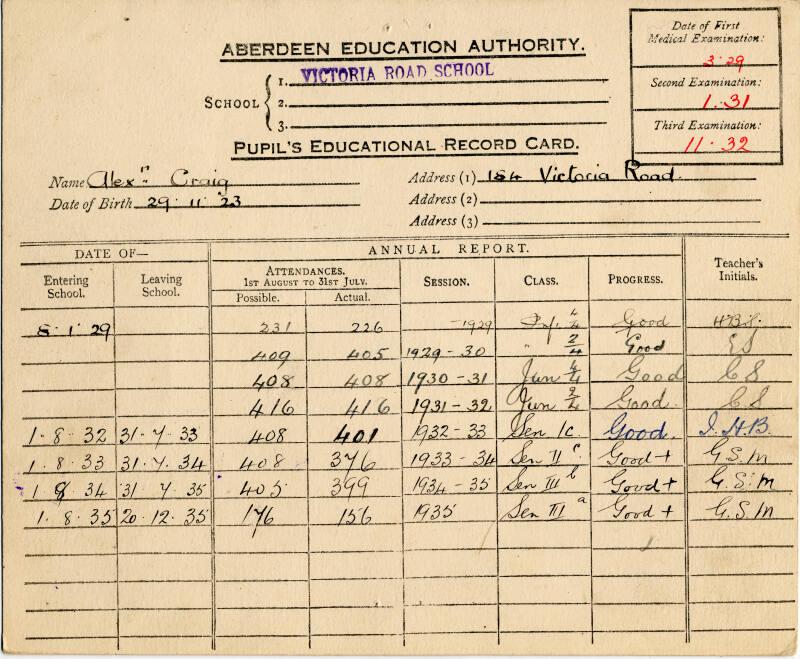 Date of First
Medical Examination:
3·29
Second Examination:
1·31
Third Examination:
11·32
ABERDEEN EDUCATION AUTHORITY.
SCHOOL
1. VICTORIA ROAD SCHOOL
2.
3.
PUPIL'S EDUCATIONAL RECORD CARD.
Name Alexr. Craig Address (1) 154 Victoria Road.
Date of Birth 29·11·23 Address (2)
Address (3)
DATE OF— ANNUAL REPORT. Teacher's Initials.
Entering School. Leaving School. ATTENDANCES. 1ST AUGUST TO 31ST JULY. SESSION. CLASS. PROGRESS.
Possible. Actual.
8·1·29 231 226 -1929 Inf. Good
409 405 1929-30 " 2/4 Good
408 408 1930-31 Jun Good
416 416 1931-32 Jun Good
1·8·32 31·7·33 408 401 1932-33 Sen Ic Good. I.H.B.
1·8·33 31·7·34 408 376 1933-34 Sen II c. Good+ G.S.M
1·8·34 31·7·35 405 399 1934-35 Sen III b Good+ G.S.M
1·8·35 20·12·35 176 156 1935 Sen III a Good+ G.S.M